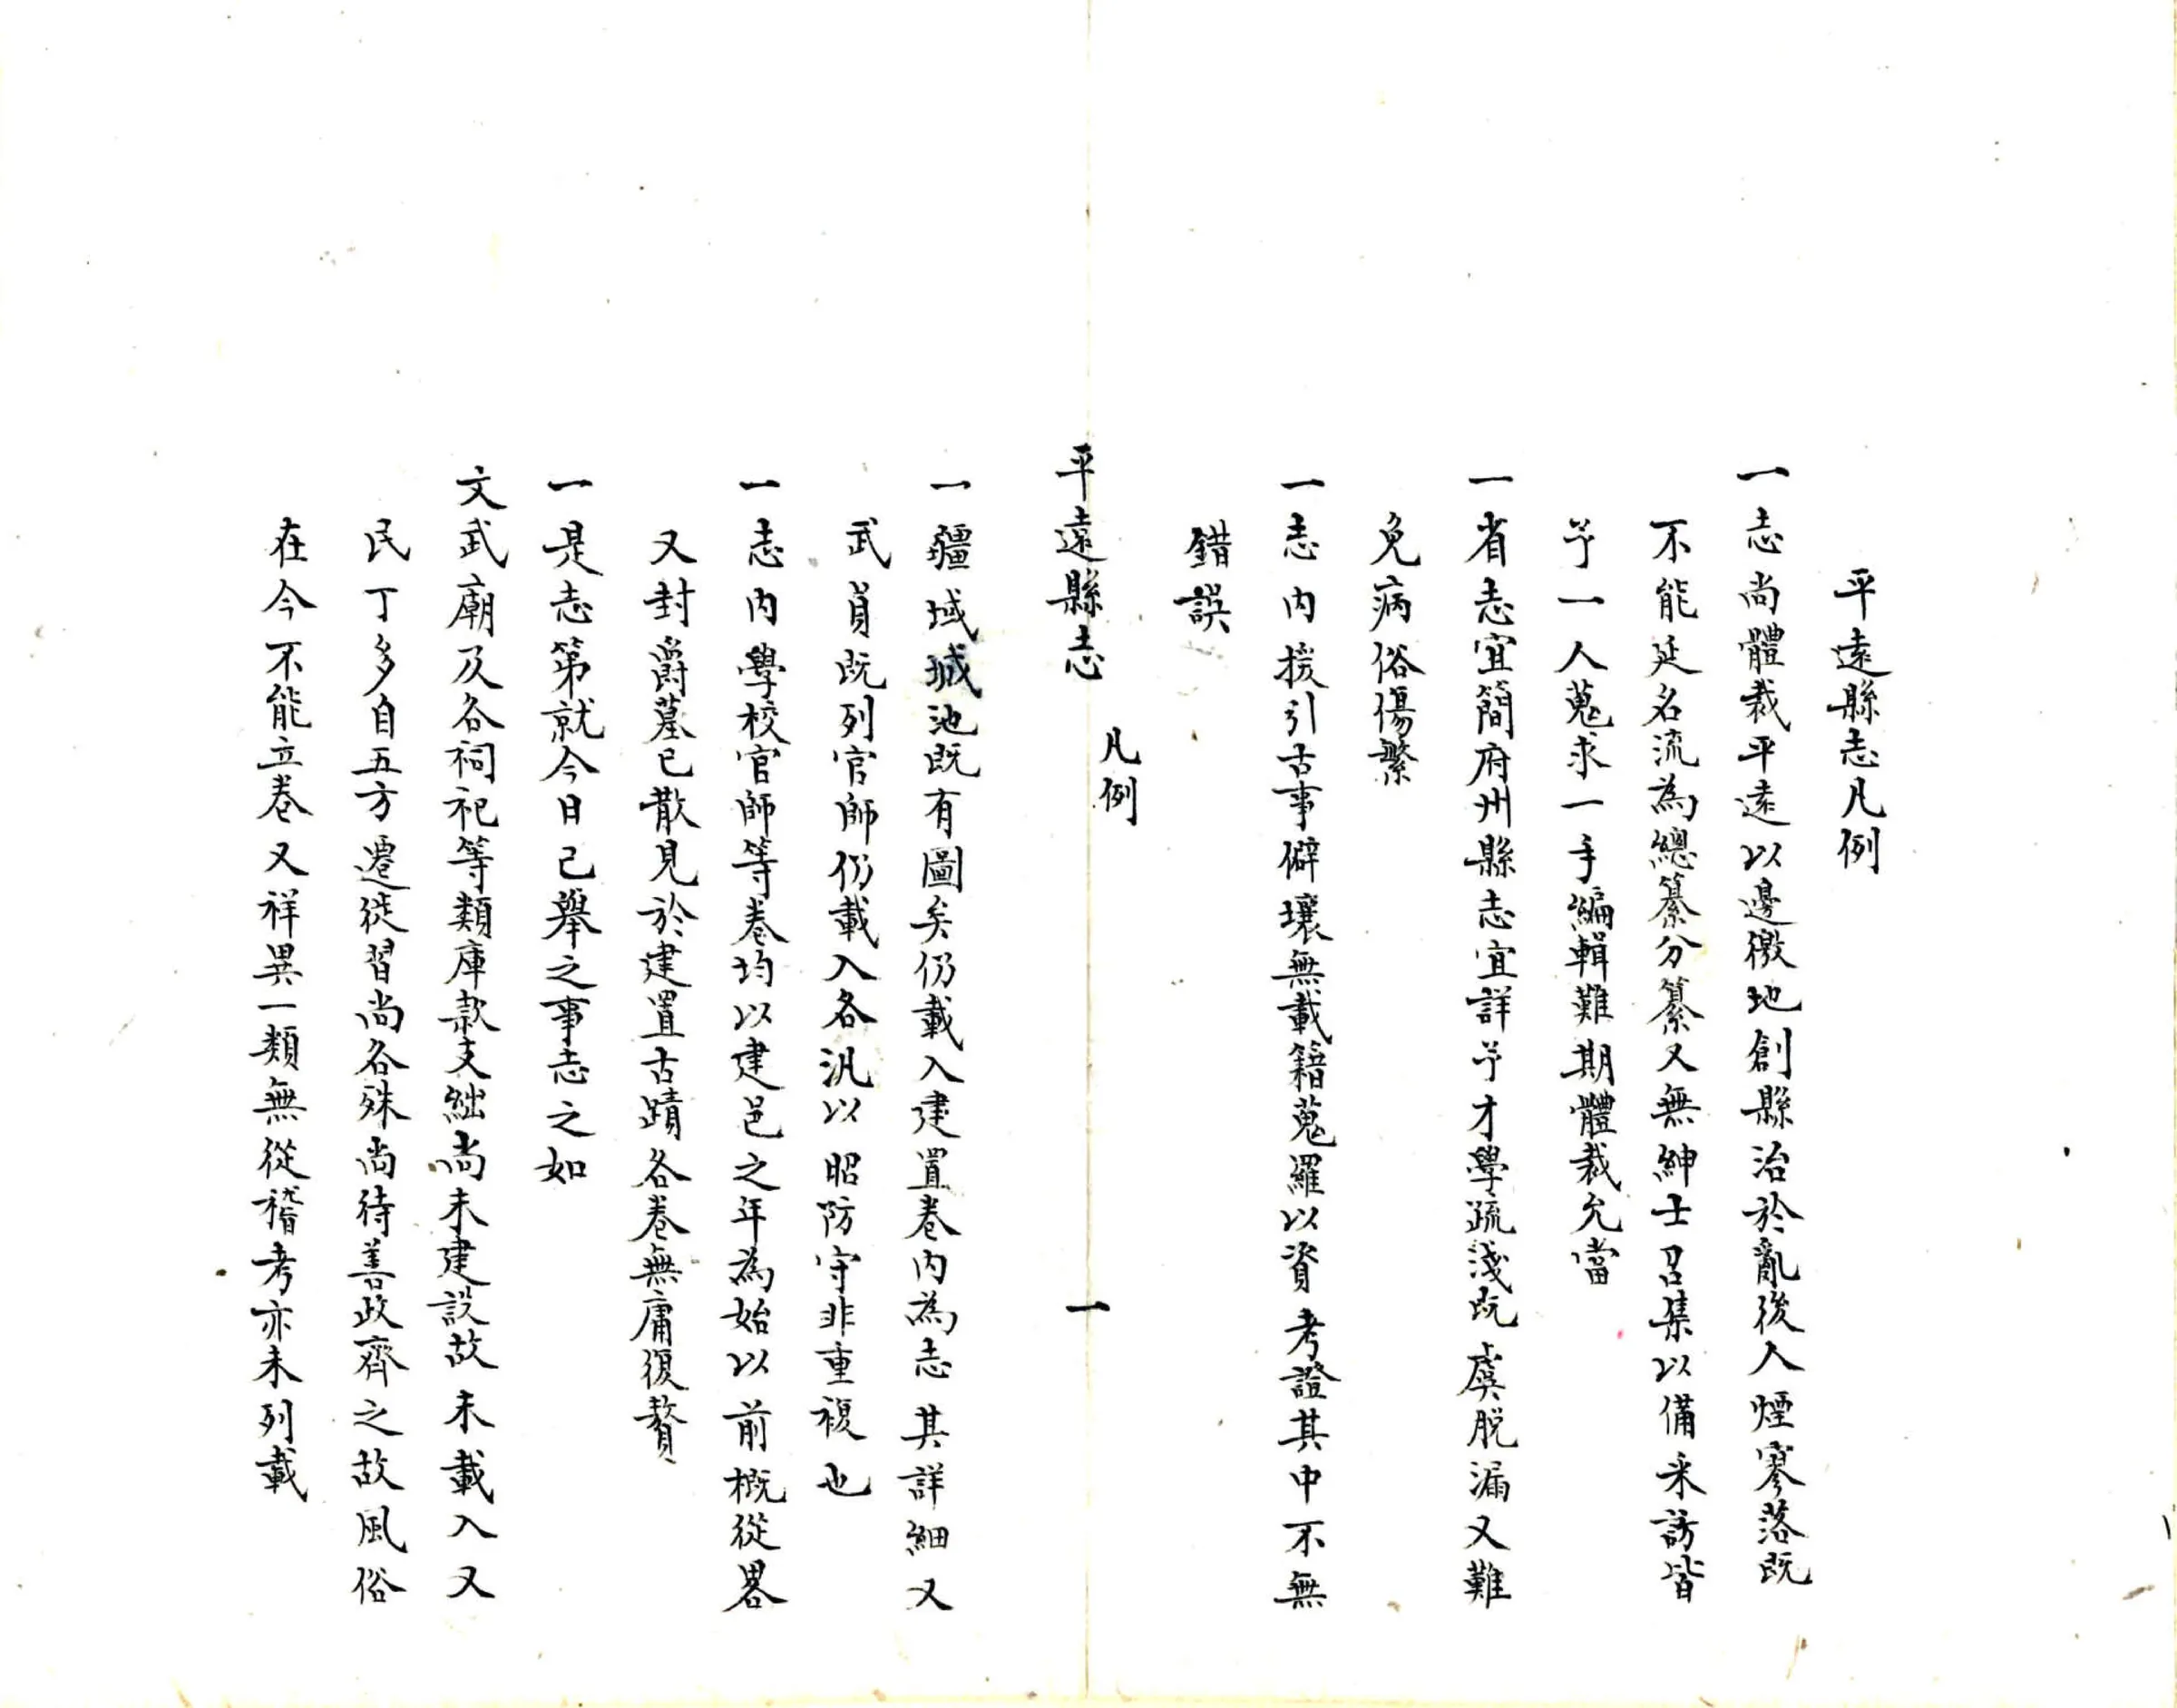 平遠縣志凡例
一志尚體裁平遠以邊徼地創縣治於亂後人煙寥落既
不能延名流為總纂分纂又無紳士召集以備采訪皆
予一人蒐求一手編輯難期體裁允當
一省志宜簡府州縣志宜詳予才學疏淺既虞脫漏又難
免病俗傷繁
一志內援引古事僻壤無載籍蒐羅以資考證其中不無
錯誤
平遠縣志
凡例
一
一疆域城池既有圖矣仍載入建置卷內為志其詳細又
武員既列官師仍載入各汛以昭防守非重複也
一志內學校官師等卷均以建邑之年為始以前概從畧
又封爵墓已散見於建置古蹟各卷無庸復贅
一是志第就今日已舉之事志之如
文武廟及各祠祀等類庫款支絀尚未建設故未載入又
民丁多自五方遷徙習尚各殊尚待善政齊之故風俗
在今不能立卷又祥異一類無從稽考亦未列載